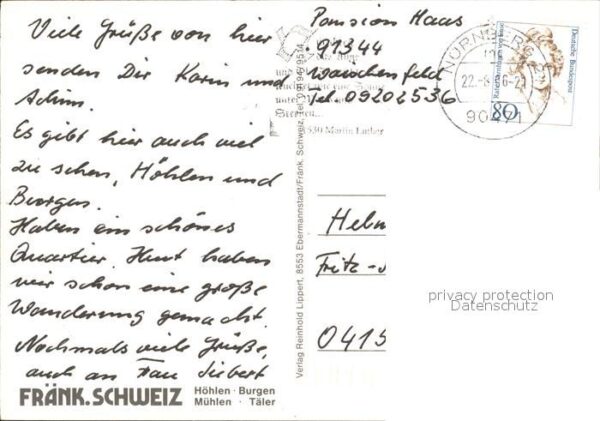 Viele Grüße von hier
senden Dir Karin und
Achim.
Es gibt hier auch viel
zu sehen, Höhlen und
Burgen.
Haben ein schönes
Quartier. Heut haben
wir schon eine große
Wanderung gemacht.
Nochmals viele Grüße,
auch an Frau Siebert
FRÄNK. SCHWEIZ
Höhlen · Burgen
Mühlen · Täler
Verlag Reinhold Lippert, 8553 Ebermannstadt/Fränk. Schweiz, Tel. 09194/9514
Pension Haas
91344
Waischenfeld
Tel 09202536
unter
Sternen...
1530 Martin Luther
NÜRNBERG
22.-8. 6-21
90471
Deutsche Bundespost
80
Helm
Fritz-
0415
privacy protection
Datenschutz